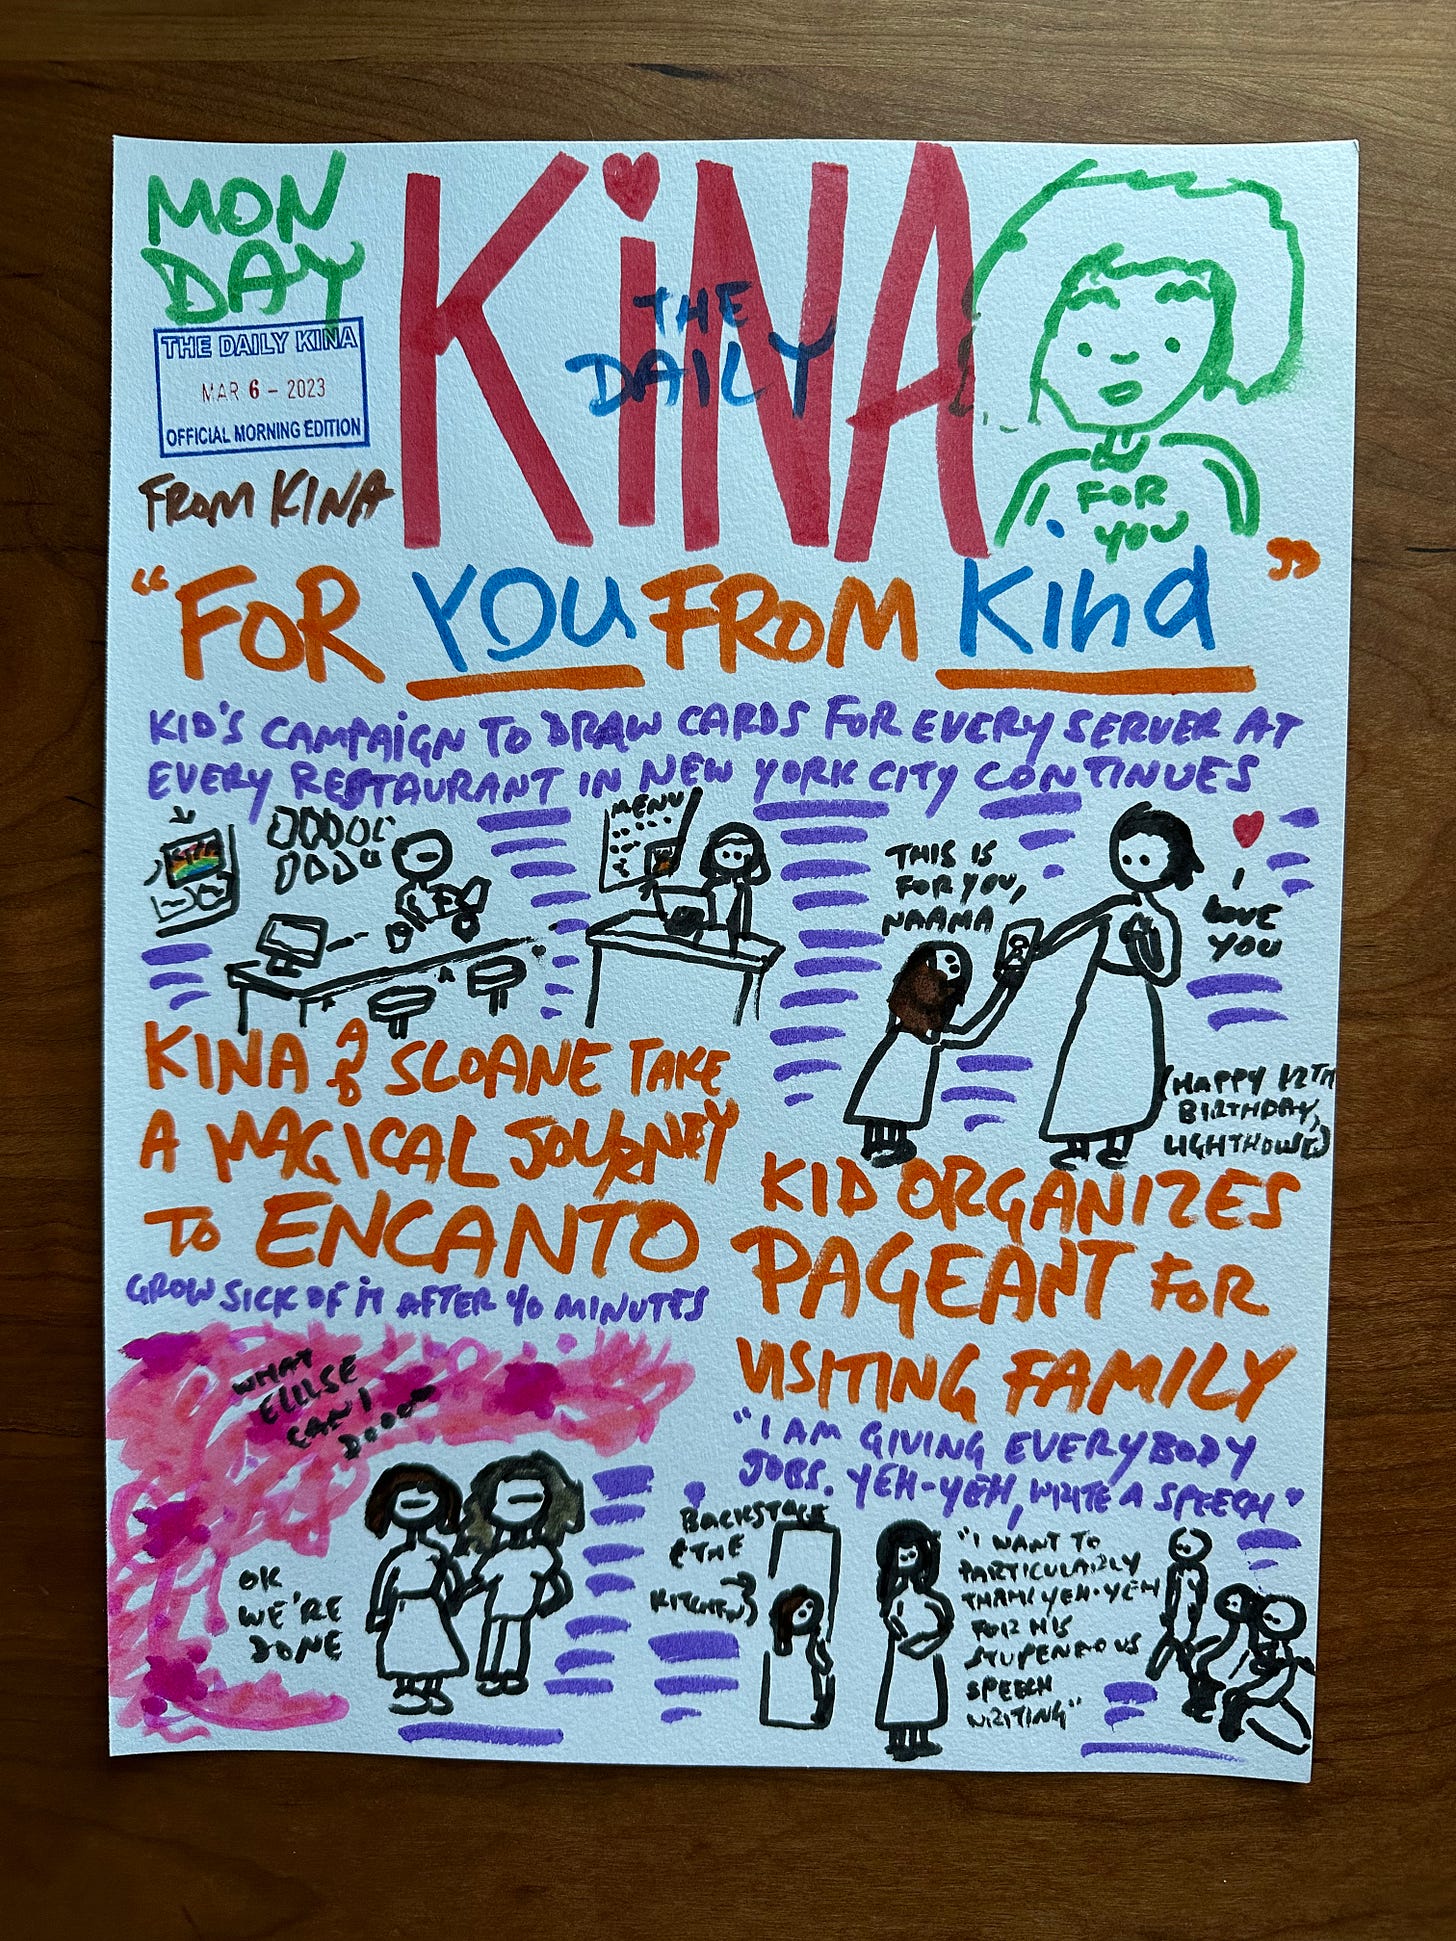 MON
DAY
THE DAILY KINA
MAR 6 - 2023
OFFICIAL MORNING EDITION
FROM KINA
KiNA
THE
DAILY
FOR
YOU
"FOR YOU FROM Kind"
KID'S CAMPAIGN TO DRAW CARDS FOR EVERY SERVER AT
EVERY RESTAURANT IN NEW YORK CITY CONTINUES
MENU
THIS IS
FOR YOU,
NAAMA
I
LOVE
YOU
(HAPPY 12TH
BIRTHDAY,
LIGHTHOUSE)
KINA AND SLOANE TAKE
A MAGICAL JOURNEY
TO ENCANTO
GROW SICK OF IT AFTER 40 MINUTES
WHAT
ELLLSE
CAN I
DOOOO
OK
WE'RE
DONE
KID ORGANIZES
PAGEANT FOR
VISITING FAMILY
"I AM GIVING EVERYBODY
JOBS. YEH-YEH, WRITE A SPEECH"
BACKSTAGE
(THE
KITCHEN)
"I WANT TO
PARTICULARLY
THANK YEH-YEH
FOR HIS
STUPENDOUS
SPEECH
WRITING"